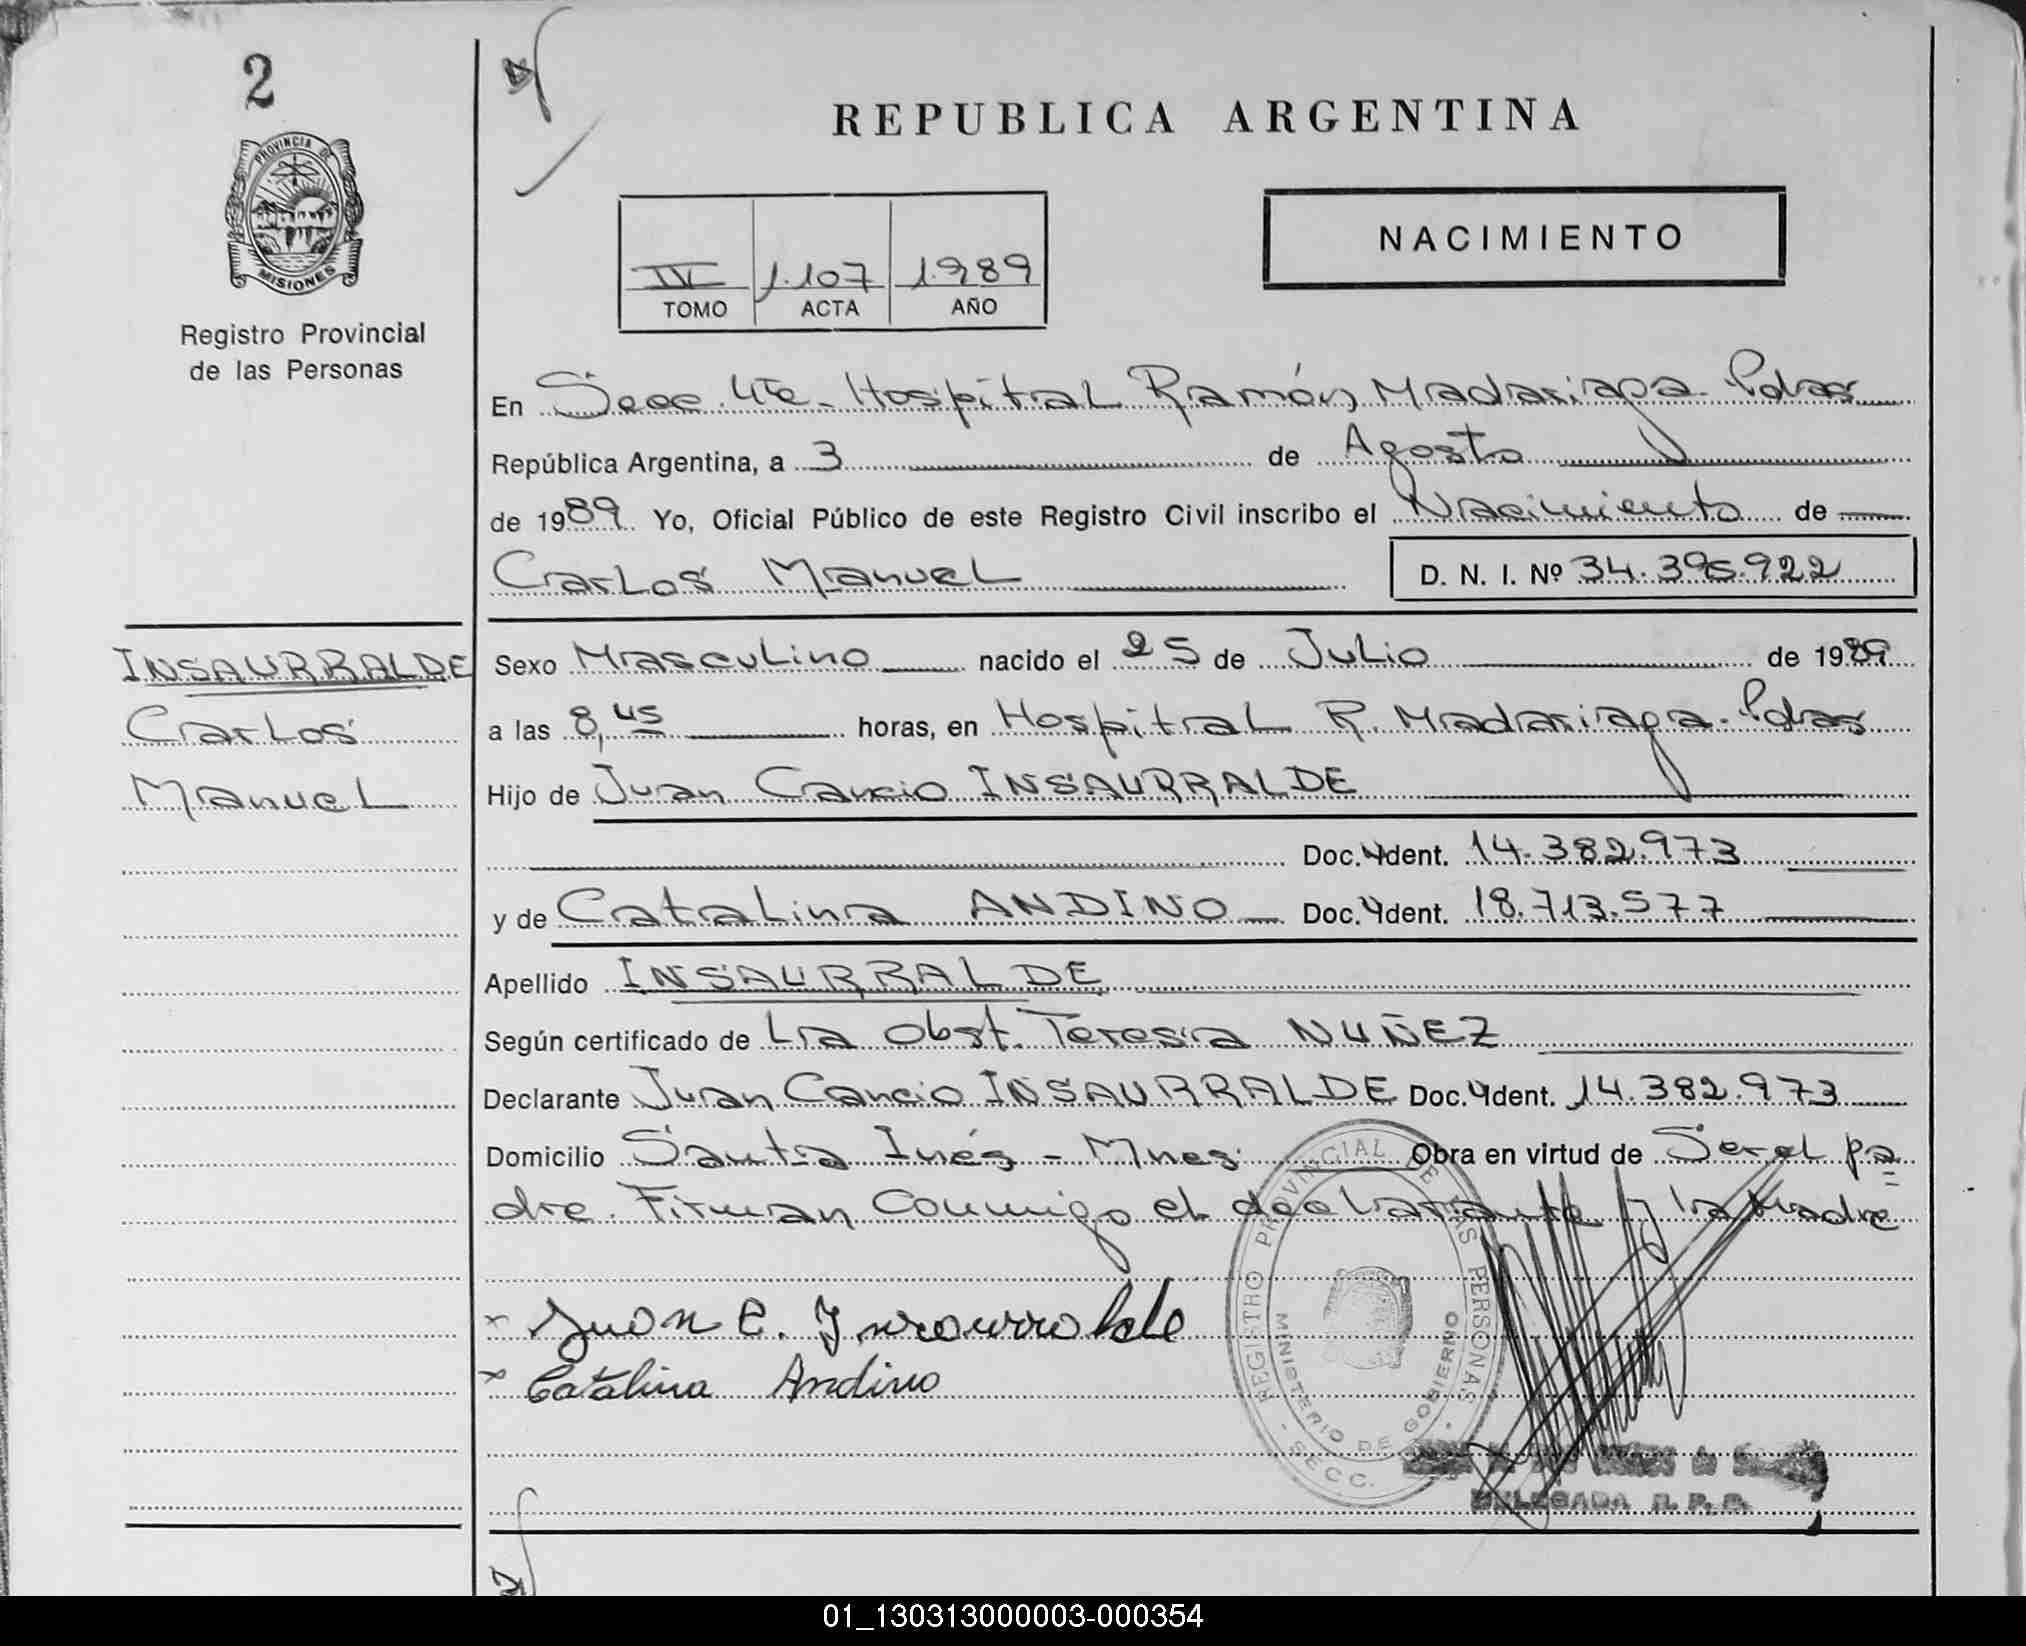 2
REPUBLICA ARGENTINA
PROVINCIA DE
MISIONES
Registro Provincial
de las Personas
NACIMIENTO
IV 1.107 1.989
TOMO ACTA AÑO
En Secc. 4ta - Hospital Ramón Madariaga - Pdas
República Argentina, a 3 de Agosto
de 1989 Yo, Oficial Público de este Registro Civil inscribo el Nacimiento de
Carlos Manuel D. N. I. Nº 34.395.922
INSAURRALDE
Carlos
Manuel
Sexo Masculino nacido el 25 de Julio de 1989
a las 8,45 horas, en Hospital R. Madariaga - Pdas
Hijo de Juan Cancio INSAURRALDE
Doc. Ident. 14.382.973
y de Catalina ANDINO Doc. Ident. 18.713.577
Apellido INSAURRALDE
Según certificado de La Obst. Teresa NUÑEZ
Declarante Juan Cancio INSAURRALDE Doc. Ident. 14.382.973
Domicilio Santa Inés - Mnes. Obra en virtud de Ser el pa
dre. Firman Conmigo el declarante y la Madre
x Juan C. Insaurralde
x Catalina Andino
REGISTRO PROVINCIAL DE LAS PERSONAS
MINISTERIO DE GOBIERNO
- SECC. -
DELEGADA R. P. P.
01_130313000003-000354